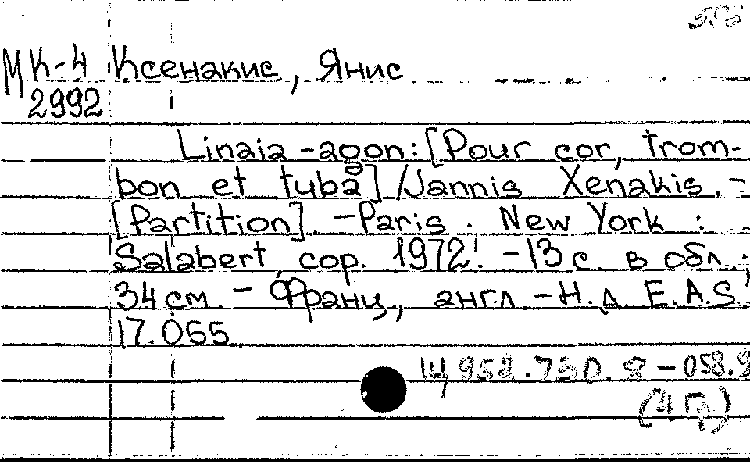 МК-4 Ксенакис, Янис
2992
Linaia-agon: [Pour cor, trom-
bon et tuba] / Jannis Xenakis. -
[Partition]. - Paris. New York :
Salabert, cop. 1972. - 13 с. в обл. ;
34 см. - Франц., англ. - Н.д. E.A.S.
17.055
Ц 952.730.2-058.9